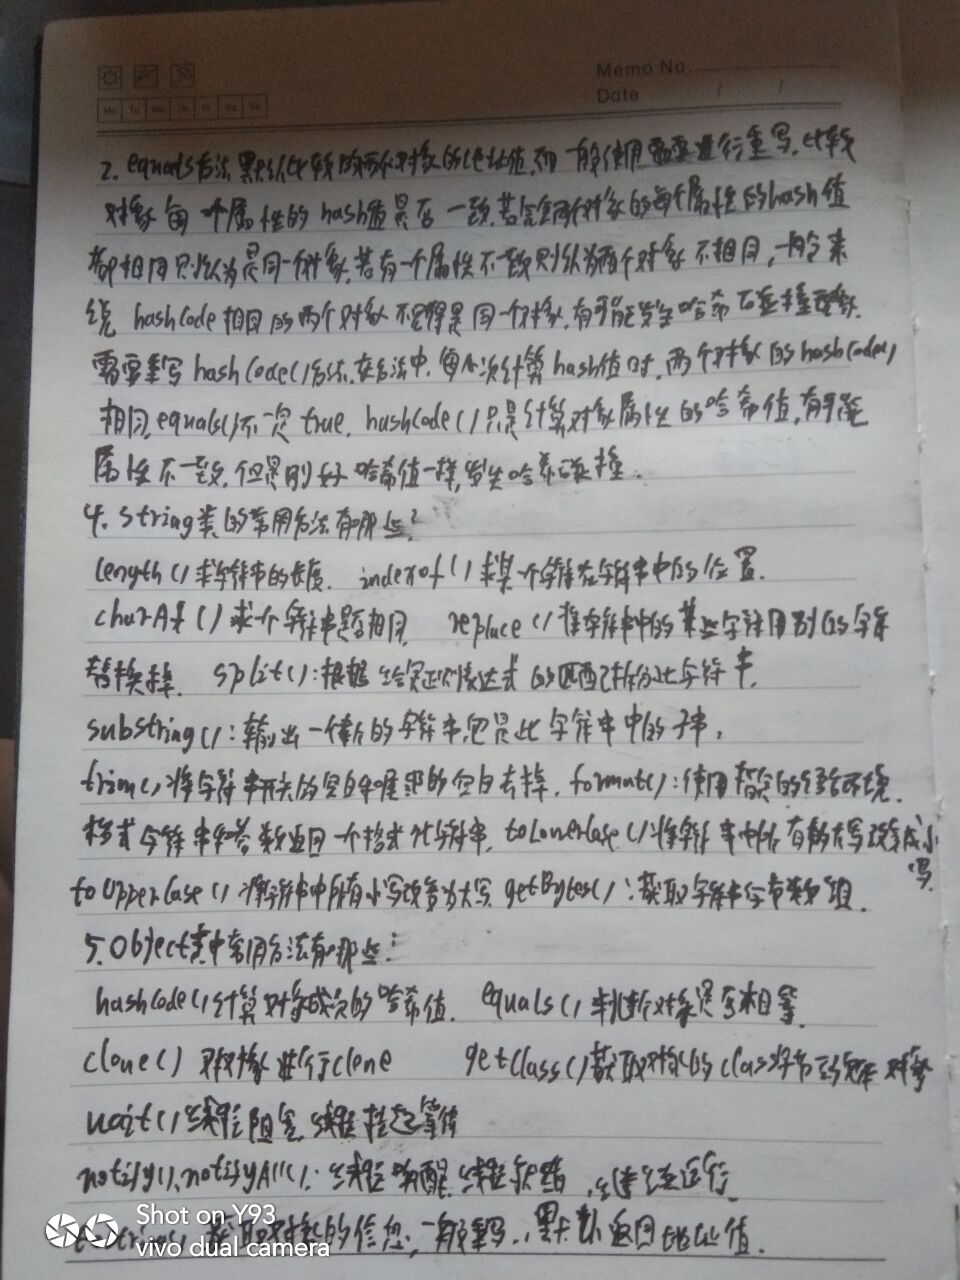 Memo No.
Date / /
Mo Tu We Th Fr Sa Su
2. equals方法 默认比较的两个对象的地址值,而一般使用需要进行重写,比较
对象每个属性的hash值是否一致,若两个对象的每个属性的hash值
都相同则认为是同一个对象,若有一个属性不一致则认为两个对象不相同,一般来
说 hashCode相同的两个对象不一定是同一个对象,有可能发生哈希碰撞
需要重写hashCode()方法,在方法中,每次计算hash值时,两个对象的hashCode()
相同,equals()不一定true, hashCode()只是计算对象属性的哈希值,有可能
属性不一致,但是刚好哈希值一样,发生哈希碰撞.
4. String类的常用方法有哪些?
length()求字符串的长度. indexof()求某个字符在字符串中的位置.
charAt()求个字符串是否相同 replace()将字符串中的某些字符用别的字符
替换掉. split():根据给定正则表达式的匹配拆分此字符串.
substring():输出一个新的字符串,它是此字符串中的子串,
trim()将字符串开头的空白和尾部的空白去掉. format():使用指定的语言环境,
格式字符串和参数返回一个格式化字符串, toLowerCase()将字符串中所有的大写改变成小
写.
toUpperCase()将字符串中所有小写改变为大写 getBytes():获取字符串字节数组.
5.Object类中常用方法有哪些:
hashCode()计算对象成员的哈希值. equals()判断对象是否相等.
clone()对对象进行clone getClass()获取对象的class字节码 对象
wait()线程阻塞,线程挂起等待
notify(),notifyAll():线程唤醒,线程就绪,继续运行
toString()获取对象的信息,一般重写,默认返回地址值.
Shot on Y93
vivo dual camera